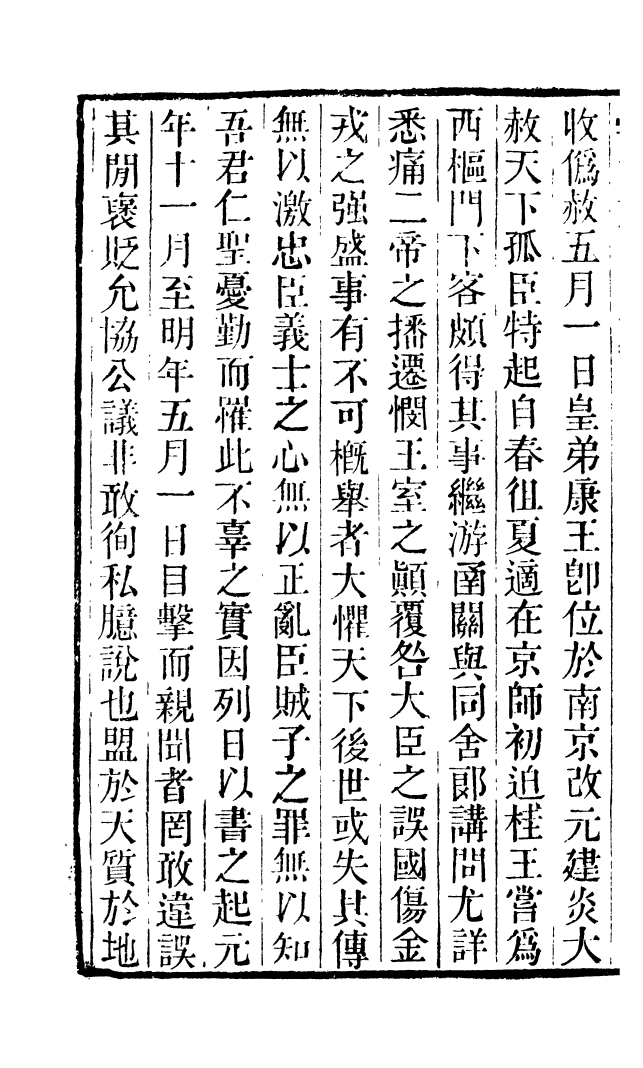 收僞赦五月一日皇弟康王卽位於南京改元建炎大
赦天下孤臣特起自春徂夏適在京師初迫桂王嘗爲
西樞門下客頗得其事繼游函關與同舍郞講問尤詳
悉痛二帝之播遷憫王室之顚覆咎大臣之誤國傷金
戎之强盛事有不可槪舉者大懼天下後世或失其傳
無以激忠臣義士之心無以正亂臣賊子之罪無以知
吾君仁聖憂勤而罹此不辜之實因列日以書之起元
年十一月至明年五月一日目擊而親聞者罔敢違誤
其閒襃貶允協公議非敢徇私臆說也盟於天質於地